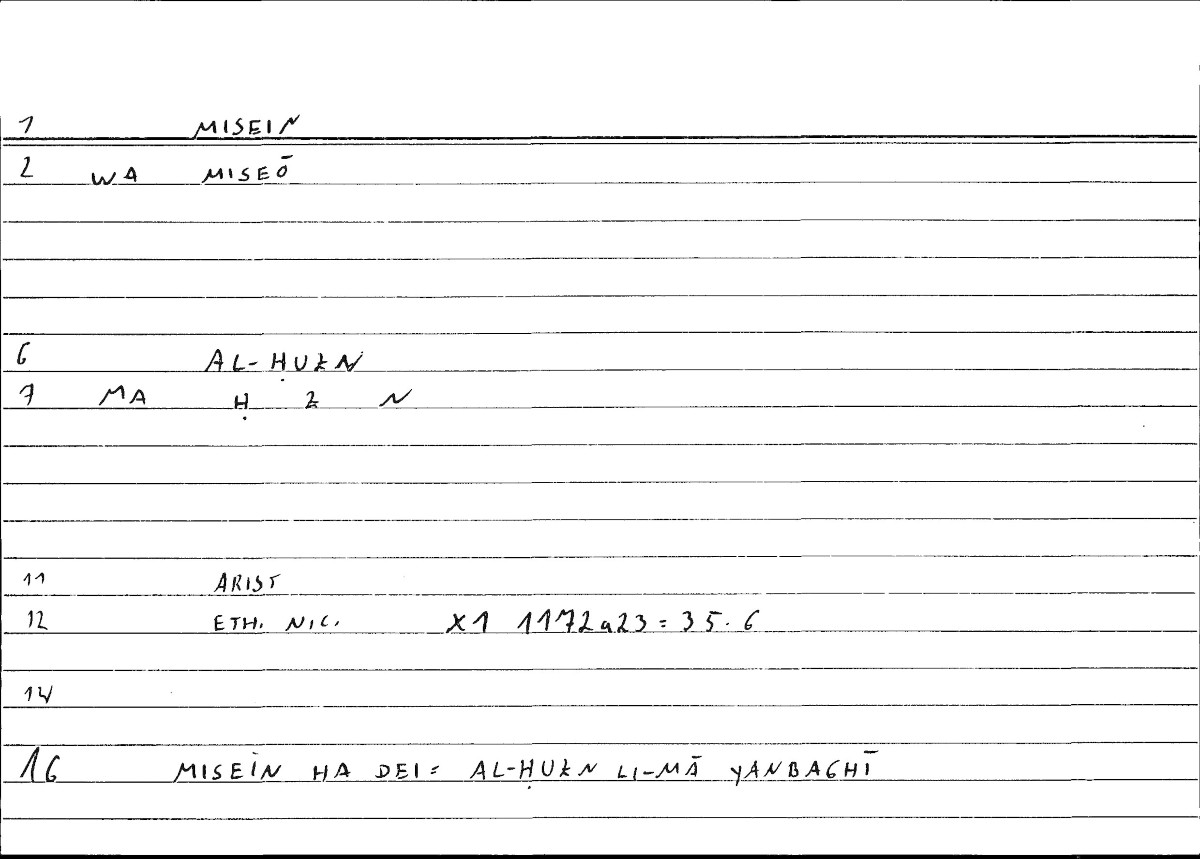 1 MISEIN
2 WA MISEŌ
6 AL-ḤUZN
7 MA Ḥ Z N
11 ARIST
12 ETH. NIC. X1 1172a23 = 35.6
14
16 MISEIN HA DEI = AL-ḤUZN LI-MĀ YANBAGHĪ